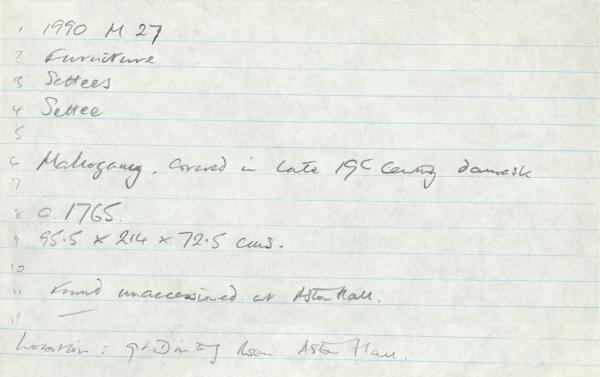 1 1990 M 27
2 Furniture
3 Settees
4 Settee
5
6 Mahogany. Covered in late 19C Century damask
7
8 c. 1765.
9 95.5 x 214 x 72.5 cms.
10
11 Found unaccessioned at Aston Hall.
Location: Gt Dining Room Aston Hall.